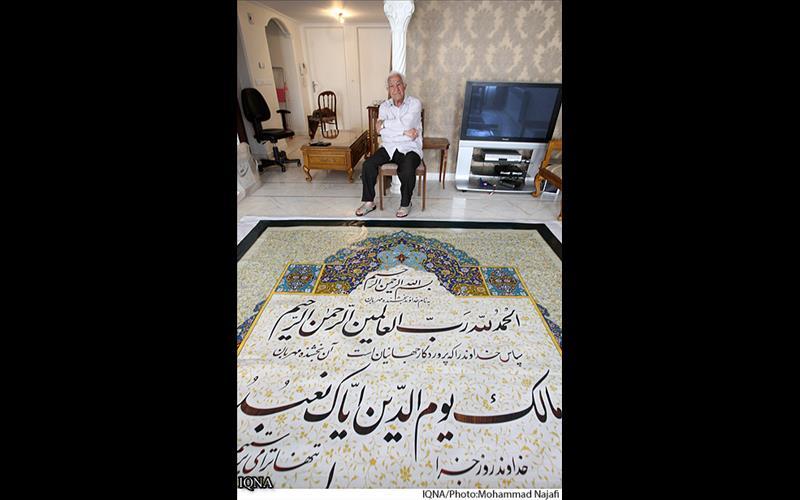 بسم الله الرحمن الرحیم
به نام خداوند بخشنده مهربان
الحمد لله رب العالمین الرحمن الرحیم
سپاس خداوند را که پروردگار جهانیان است آن بخشنده مهربان
مالک یوم الدین ایاک نعبد
خداوند روز جزا تنها ترا می
IQNA
IQNA/Photo:Mohammad Najafi